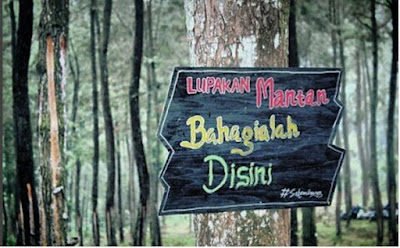 LUPAKAN Mantan
Bahagialah
Disini